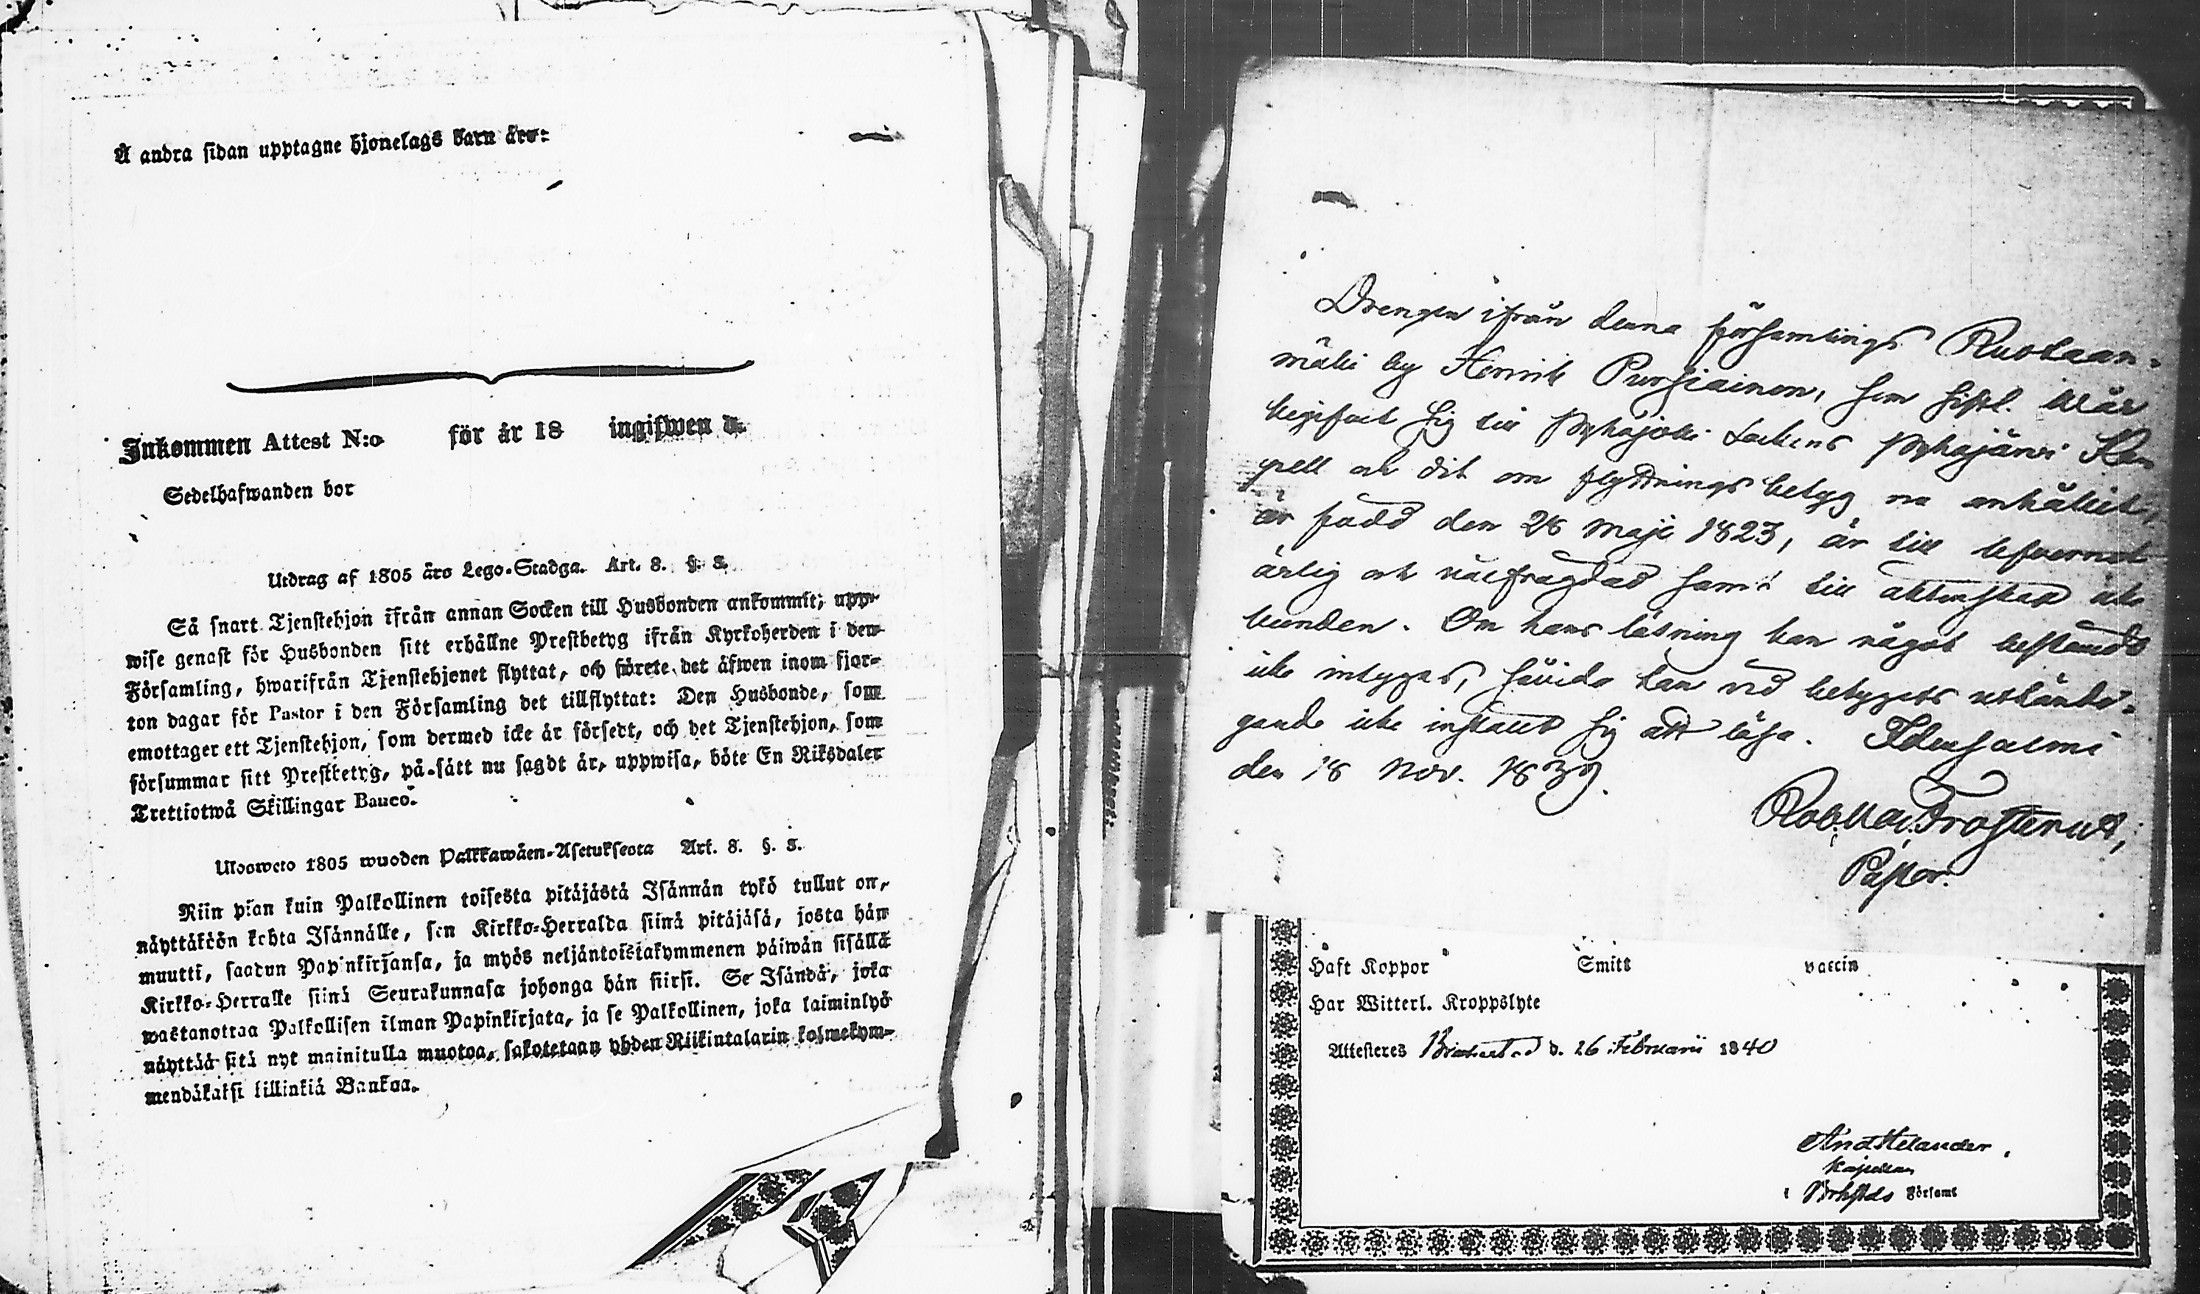 Å andra sidan upptagne hjonelags barn äro:
Inkommen Attest N:o för år 18 ingifwen d.
Sedelhafwanden bor
Utdrag af 1805 års Lego-Stadga. Art. 8. §. 3.
Så snart Tjenstehjon ifrån annan Socken till Husbonden ankommit, upp-
wise genast för Husbonden sitt erhållne Prestbetyg ifrån Kyrkoherden i den
Församling, hwarifrån Tjenstehjonet flyttat, och förete det äfwen inom fjor-
ton dagar för Pastor i den Församling det tillflyttat: Den Husbonde, som
emottager ett Tjenstehjon, som dermed icke är försedt, och det Tjenstehjon, som
försummar sitt Prestbetyg, på sätt nu sagdt är, uppwisa, böte En Riksdaler
Trettiotwå Skillingar Banco.
Ulosweto 1805 wuoden Palkkawäen-Asetuksesta Art. 8. §. 3.
Niin pian kuin Palkollinen toisesta pitäjästä Isännän tykö tullut on,
näyttäköön kohta Isännälle, sen Kirkko-Herralda siinä pitäjäsä, josta hän
muutti, saadun Papinkirjansa, ja myös neljäntoistakymmenen päiwän sisällä
Kirkko-Herralle siinä Seurakunnasa johonga hän siirsi. Se Isändä, joka
wastanottaa Palkollisen ilman Papinkirjata, ja se Palkollinen, joka laiminlyö
näyttää sitä nyt mainitulla muotoa, sakotetaan yhden Riikintalarin kolmekym-
mendäkaksi killinkiä Bankoa.
Drengen ifrån denna församlings Ruotaan-
mäki by Henrik Pursiainen, som sistl. wår
begifvit sig till Pyhäjoki Sockens Pyhäjärvi Ka-
pell och dit om flyttningsbetyg nu anhållit,
är född den 28 Maji 1823, är till lefvernet
ärlig och välfrägdad samt till äktenskap icke
bunden. Om hans läsning kan något bestämdt
icke intygas, såvida han vid betygets utbekom-
gande icke inställt sig att läsa. Idensalmi
den 18 Nov. 1839.
Frosterus,
Pastor.
Haft Koppor Smitt vaccin
Har Witterl. Kroppslyte
Attesteres Brahestad d. 26 Februarii 1840
And Helander
Kapellan
i Brhstds Församl